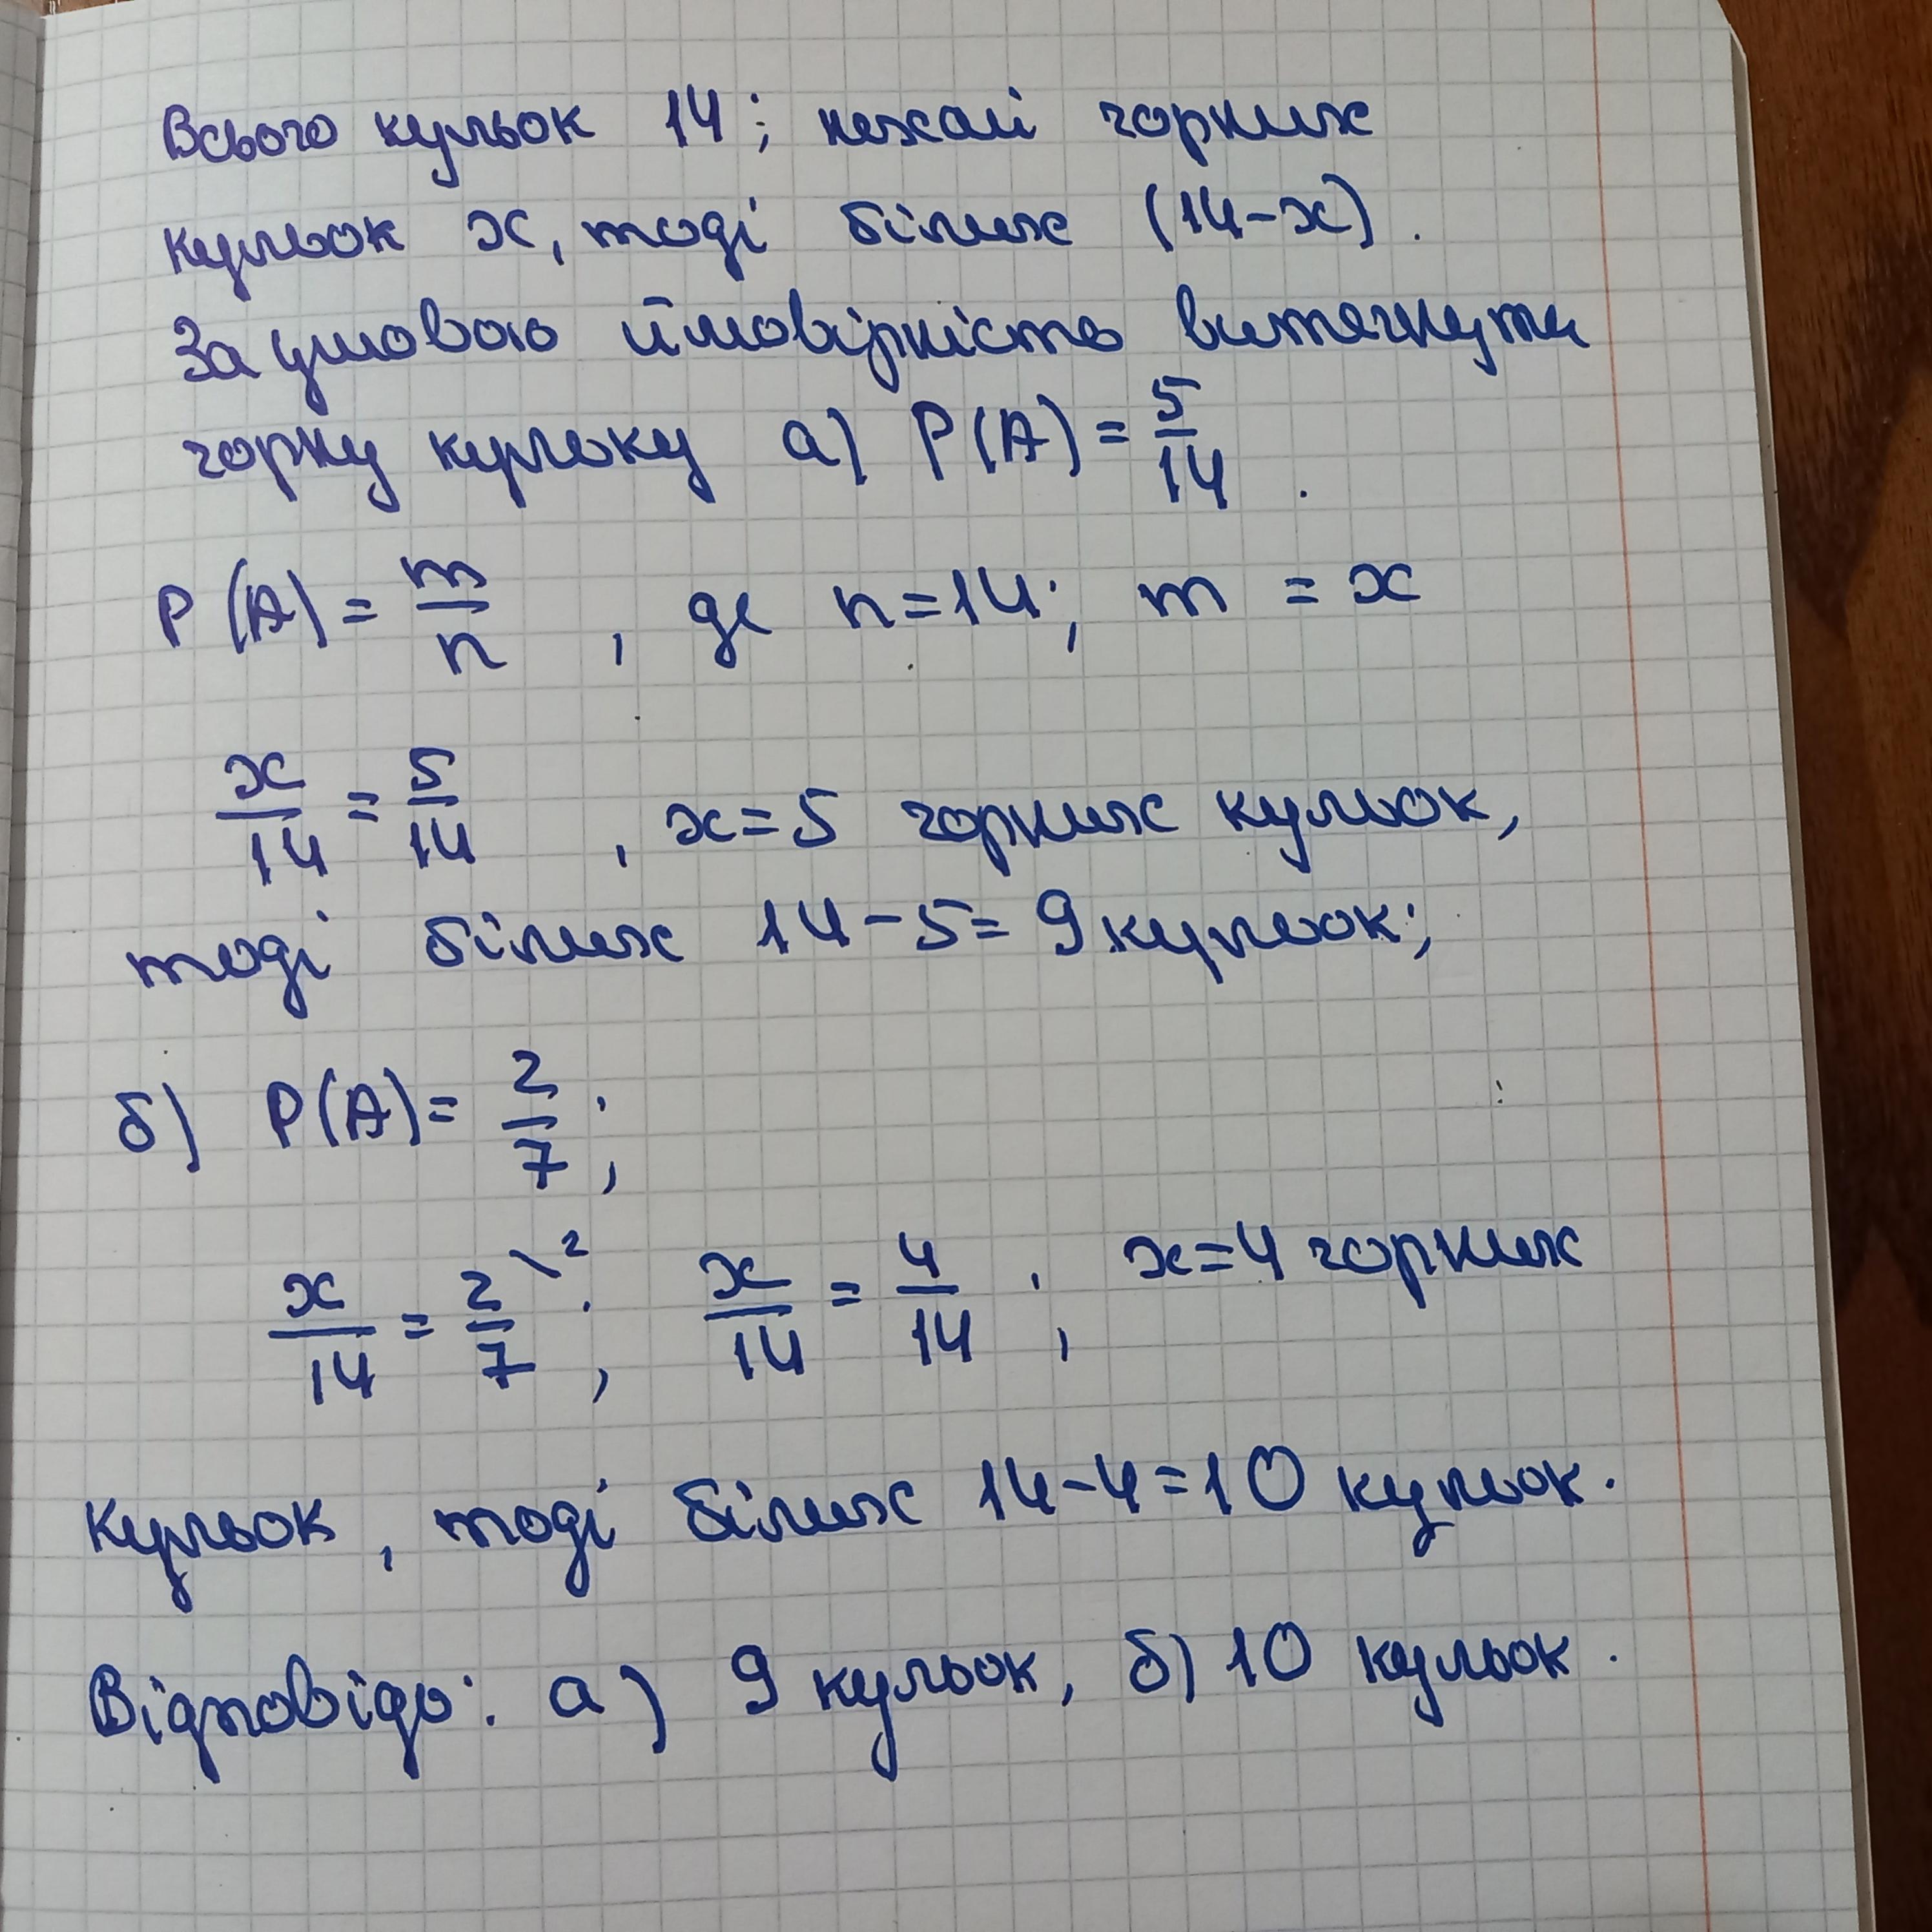 Всього кульок 14; нехай чорних
кульок x, тоді білих (14-x).
За умовою ймовірність витягнути
чорну кульку а) P(A) = 5/14.
P(A) = m/n, де n=14; m = x
x/14 = 5/14, x=5 чорних кульок,
тоді білих 14-5= 9 кульок;
б) P(A)= 2/7;
x/14 = 2/7 \2; x/14 = 4/14; x=4 чорних
кульок, тоді білих 14-4=10 кульок.
Відповідь: а) 9 кульок, б) 10 кульок.